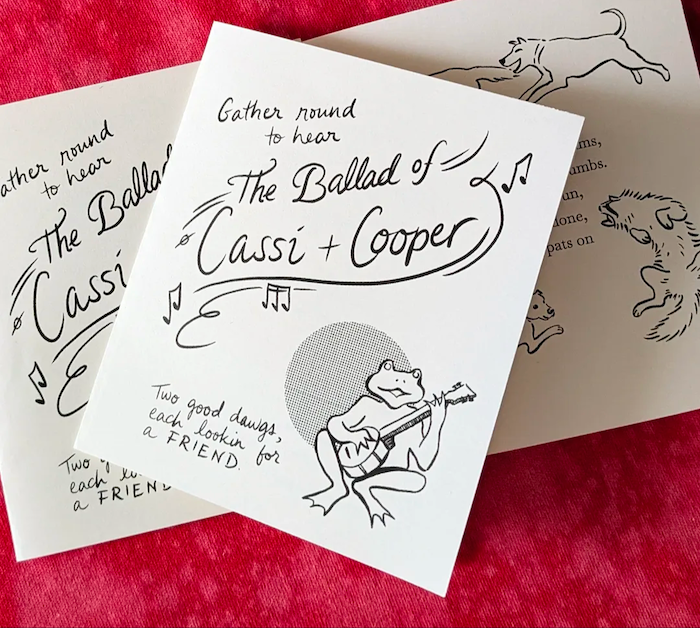 Gather round
to hear
The Ballad of
Cassi + Cooper
Two good dawgs,
each lookin for
a FRIEND.
ather round
to hear
The Ballad
Cassi
Two
each
a FRIEND
ms,
umbs.
un,
lone,
pats on